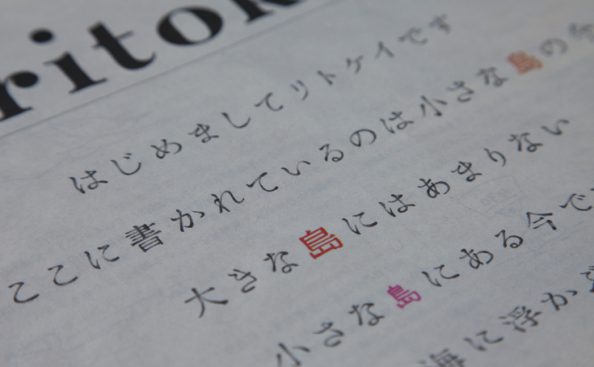 ritok
はじめましてリトケイです
ここに書かれているのは小さな島の今
大きな島にはあまりない
小さな島にある今で
海に浮か